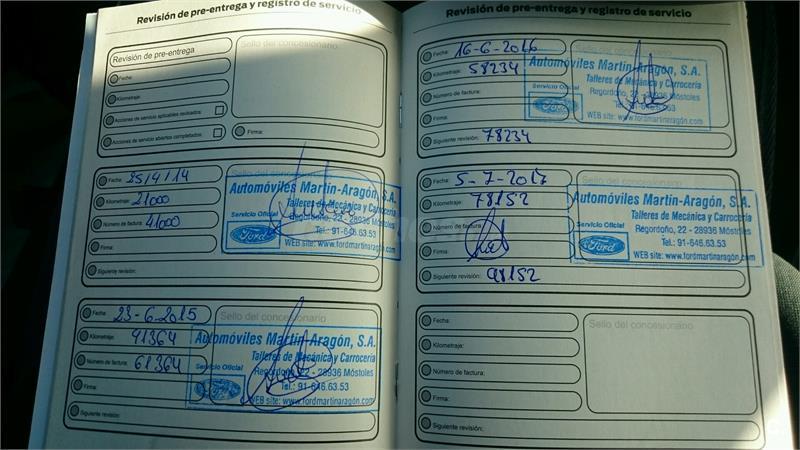 Revisión de pre-entrega y registro de servicio
Revisión de pre-entrega
Fecha:
Kilometraje:
Acciones de servicio aplicables revisados:
Acciones de servicio abiertos completados:
Sello del concesionario
Firma:
Fecha: 25/4/14
Kilometraje: 21000
Número de factura: 41000
Firma:
Siguiente revisión:
Sello del concesionario
Automóviles Martin-Aragón, S.A.
Talleres de Mecánica y Carrocería
Servicio Oficial
Regordoño, 22 - 28936 Móstoles
Ford
Tel.: 91-646.63.53
WEB site: www.fordmartinaragón.com
Fecha: 23-6-2015
Kilometraje: 41364
Número de factura: 61364
Firma:
Siguiente revisión:
Sello del concesionario
Automóviles Martin-Aragón, S.A.
Talleres de Mecánica y Carrocería
Servicio Oficial
Regordoño, 22 - 28936 Móstoles
Ford
Tel.: 91-646.63.53
WEB site: www.fordmartinaragón.com
Revisión de pre-entrega y registro de servicio
Fecha: 16-6-2016
Kilometraje: 58234
Número de factura:
Firma:
Siguiente revisión: 78234
Automóviles Martin-Aragón, S.A.
Talleres de Mecánica y Carrocería
Servicio Oficial
Regordoño, 22 - 28936 Móstoles
Ford
WEB site: www.fordmartinaragón.com
Fecha: 5-7-2017
Kilometraje: 78152
Número de factura:
Firma:
Siguiente revisión: 98152
Sello del concesionario
Automóviles Martin-Aragón, S.A.
Talleres de Mecánica y Carrocería
Servicio Oficial
Regordoño, 22 - 28936 Móstoles
Ford
Tel.: 91-646.63.53
WEB site: www.fordmartinaragón.com
Fecha:
Kilometraje:
Número de factura:
Firma:
Siguiente revisión:
Sello del concesionario